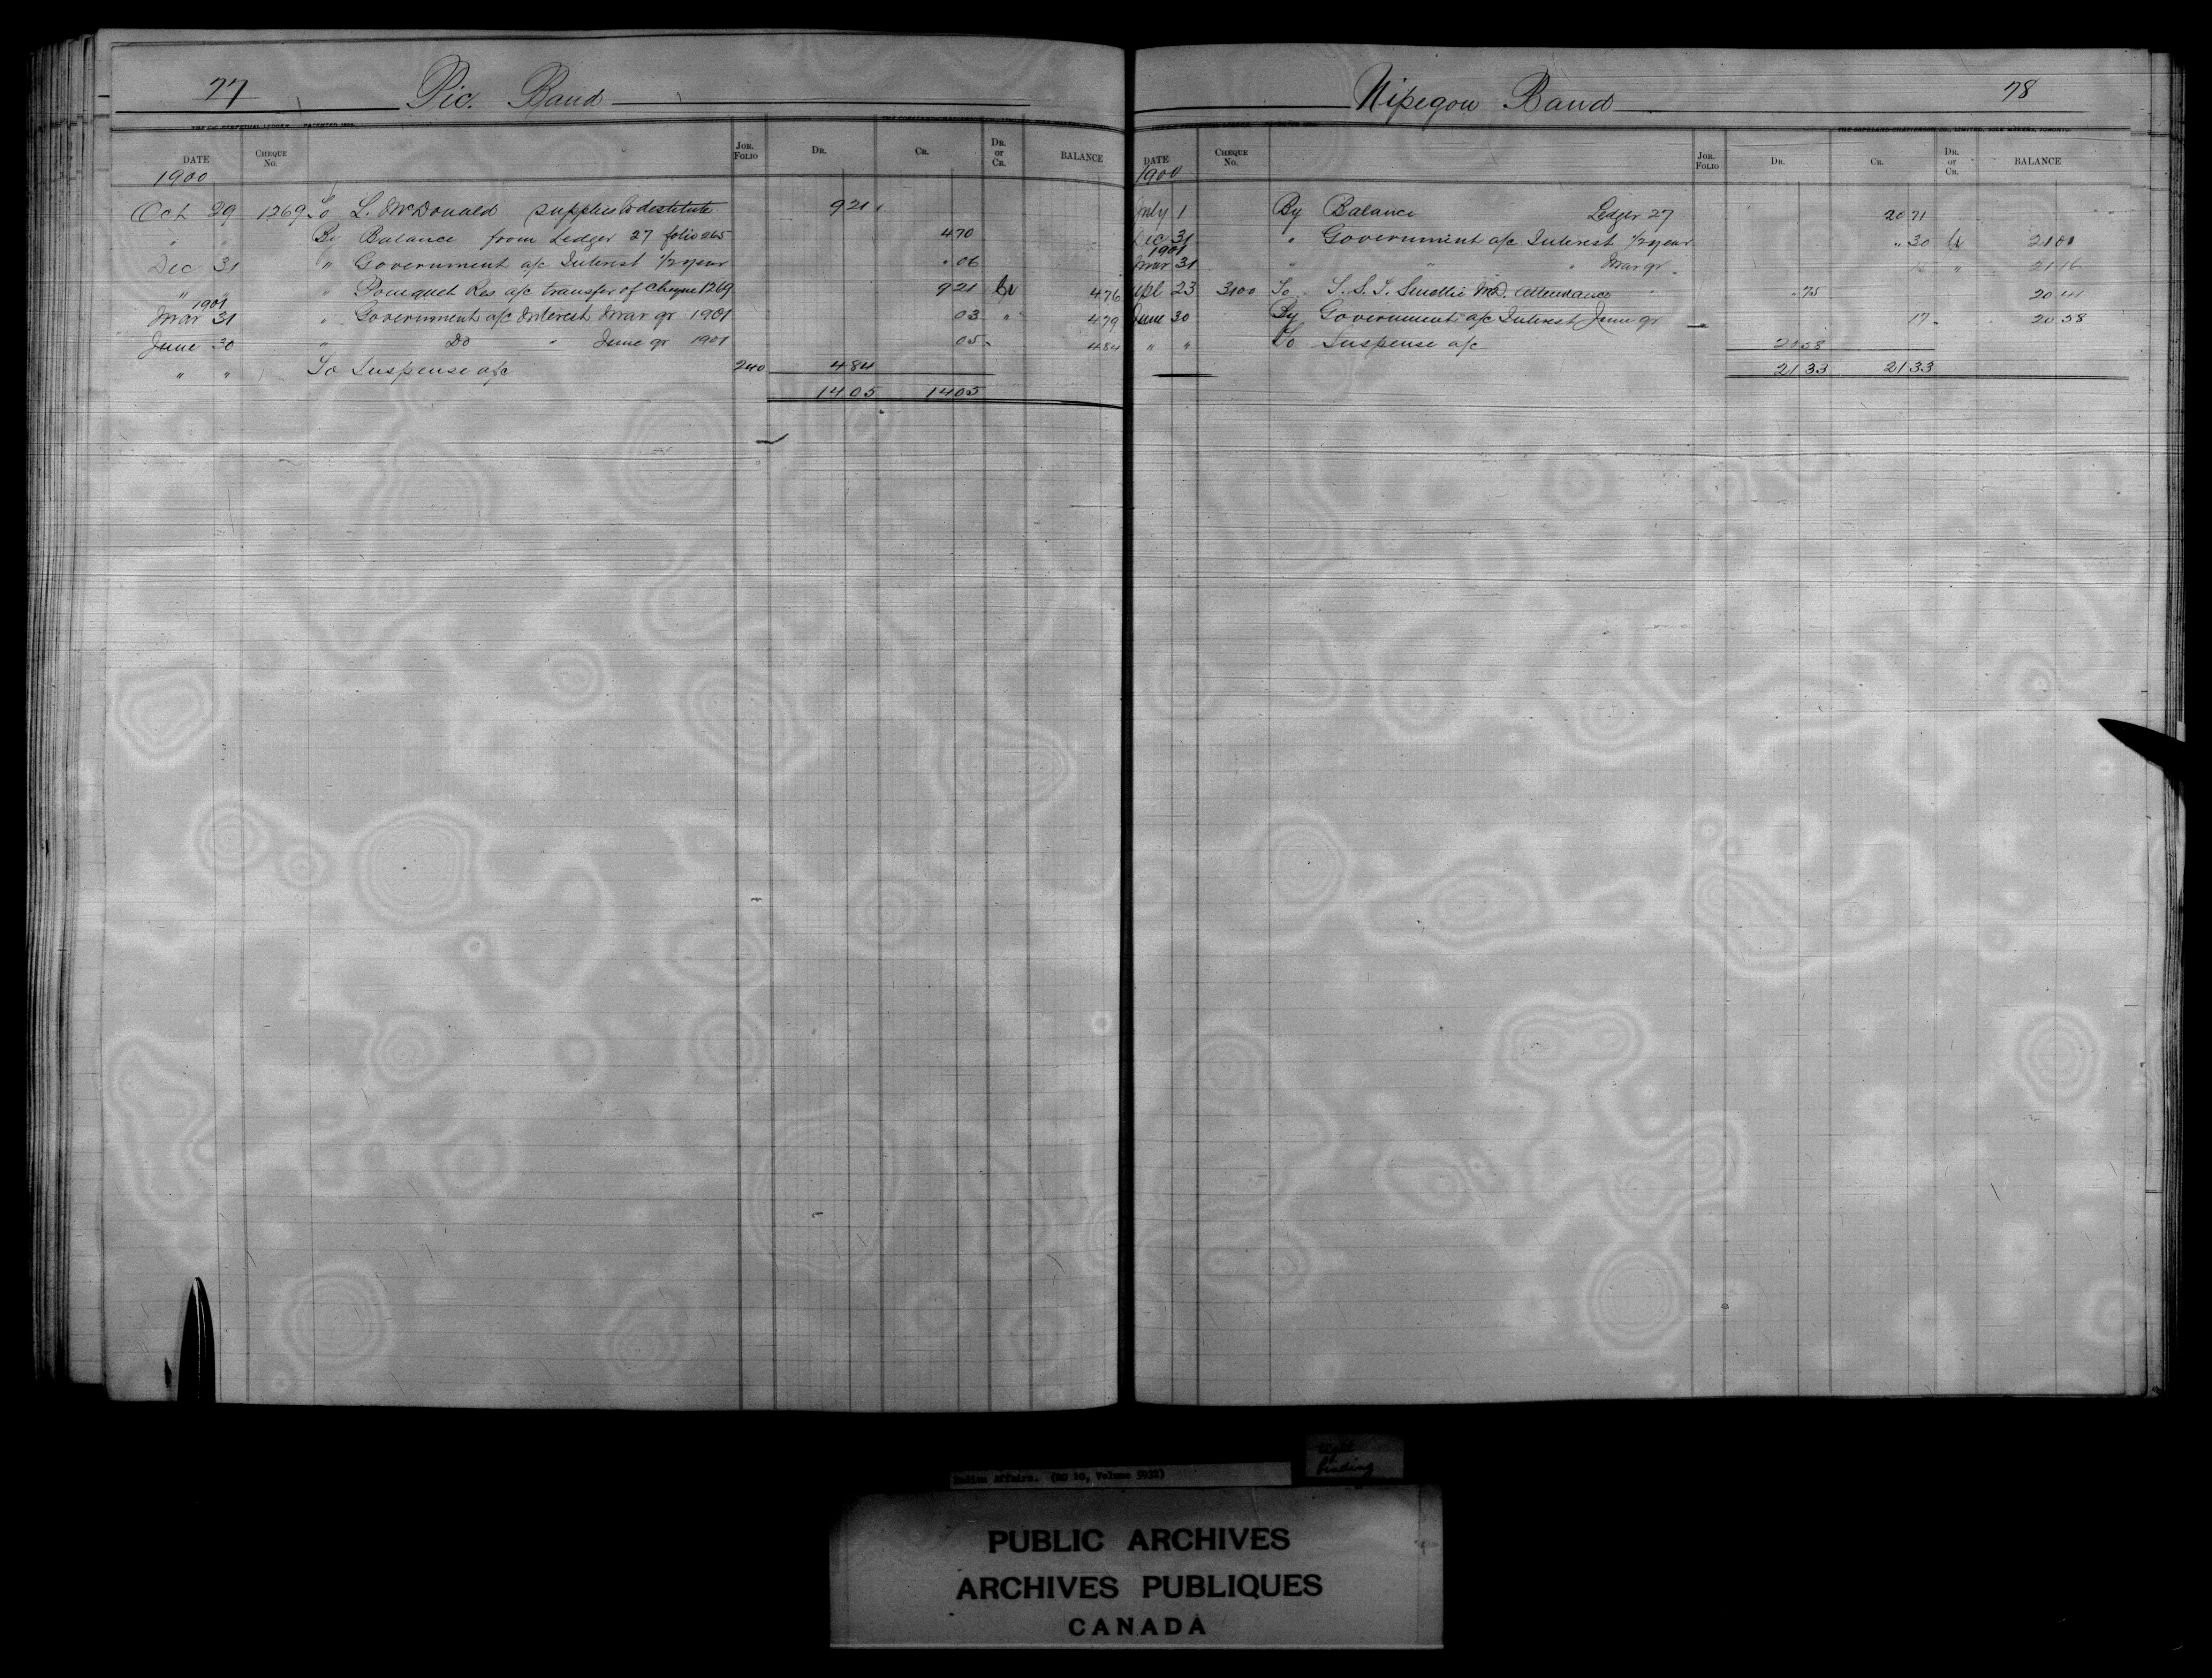 77 Pic. Band
DATE CHEQUE No. JOR. FOLIO DR. CR. DR. or CR. BALANCE
1900
Oct 29 1269 To L. McDonald supplies to destitute 9 21
" " By Balance from Ledger 27 folio 265 4 70
Dec 31 " Government a/c Interest 1/2 year 06
" " " Pourquet Res a/c transfer of Cheque 1269 9 21 Cr 4 76
1901
Mar 31 " Government a/c Interest Mar qr 1901 03 " 4 79
June 30 " Do " June qr 1901 05 4 84
" " To Suspense a/c 240 4 84
14 05 14 05
Nipegon Band 78
THE COPELAND-CHATTERSON CO., LIMITED, SOLE MAKERS, TORONTO.
DATE CHEQUE No. JOR. FOLIO DR. CR. DR. or CR. BALANCE
1900
July 1 By Balance Ledger 27 20 71
Dec 31 " Government a/c Interest 1/2 year " 30 Cr 21 01
1901
Mar 31 " " " Mar qr 15 " 21 16
Apl 23 3100 To T. S. T. Smellie M.D. Attendance 75 20 41
June 30 By Government a/c Interest June qr 17 20 58
" " To Suspense a/c 20 58
21 33 21 33
Indian Affairs. (RG 10, Volume 5932)
tight binding
PUBLIC ARCHIVES
ARCHIVES PUBLIQUES
CANADA